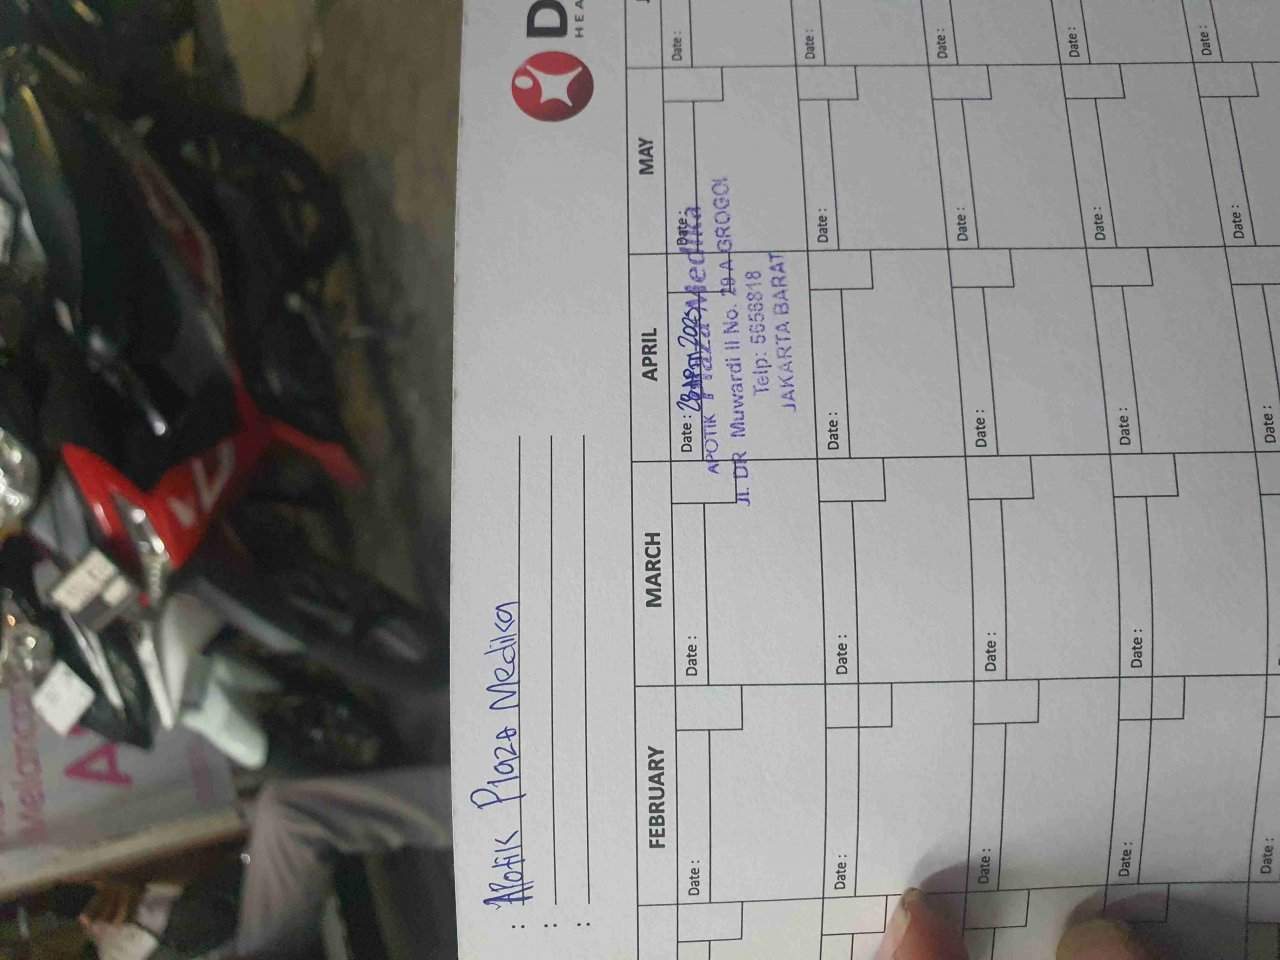 : Apotik Plaza Medika
:
:
D
HEA
FEBRUARY MARCH APRIL MAY
Date : Date : Date : 28 April 2025 Date : Date :
APOTIK Plaza Medika
Jl. DR Muwardi II No. 29 A GROGOL
Telp: 5656818
JAKARTA BARAT
Date : Date : Date : Date : Date :
Date : Date : Date : Date : Date :
Date : Date : Date : Date : Date :
Date : Date : Date : Date :